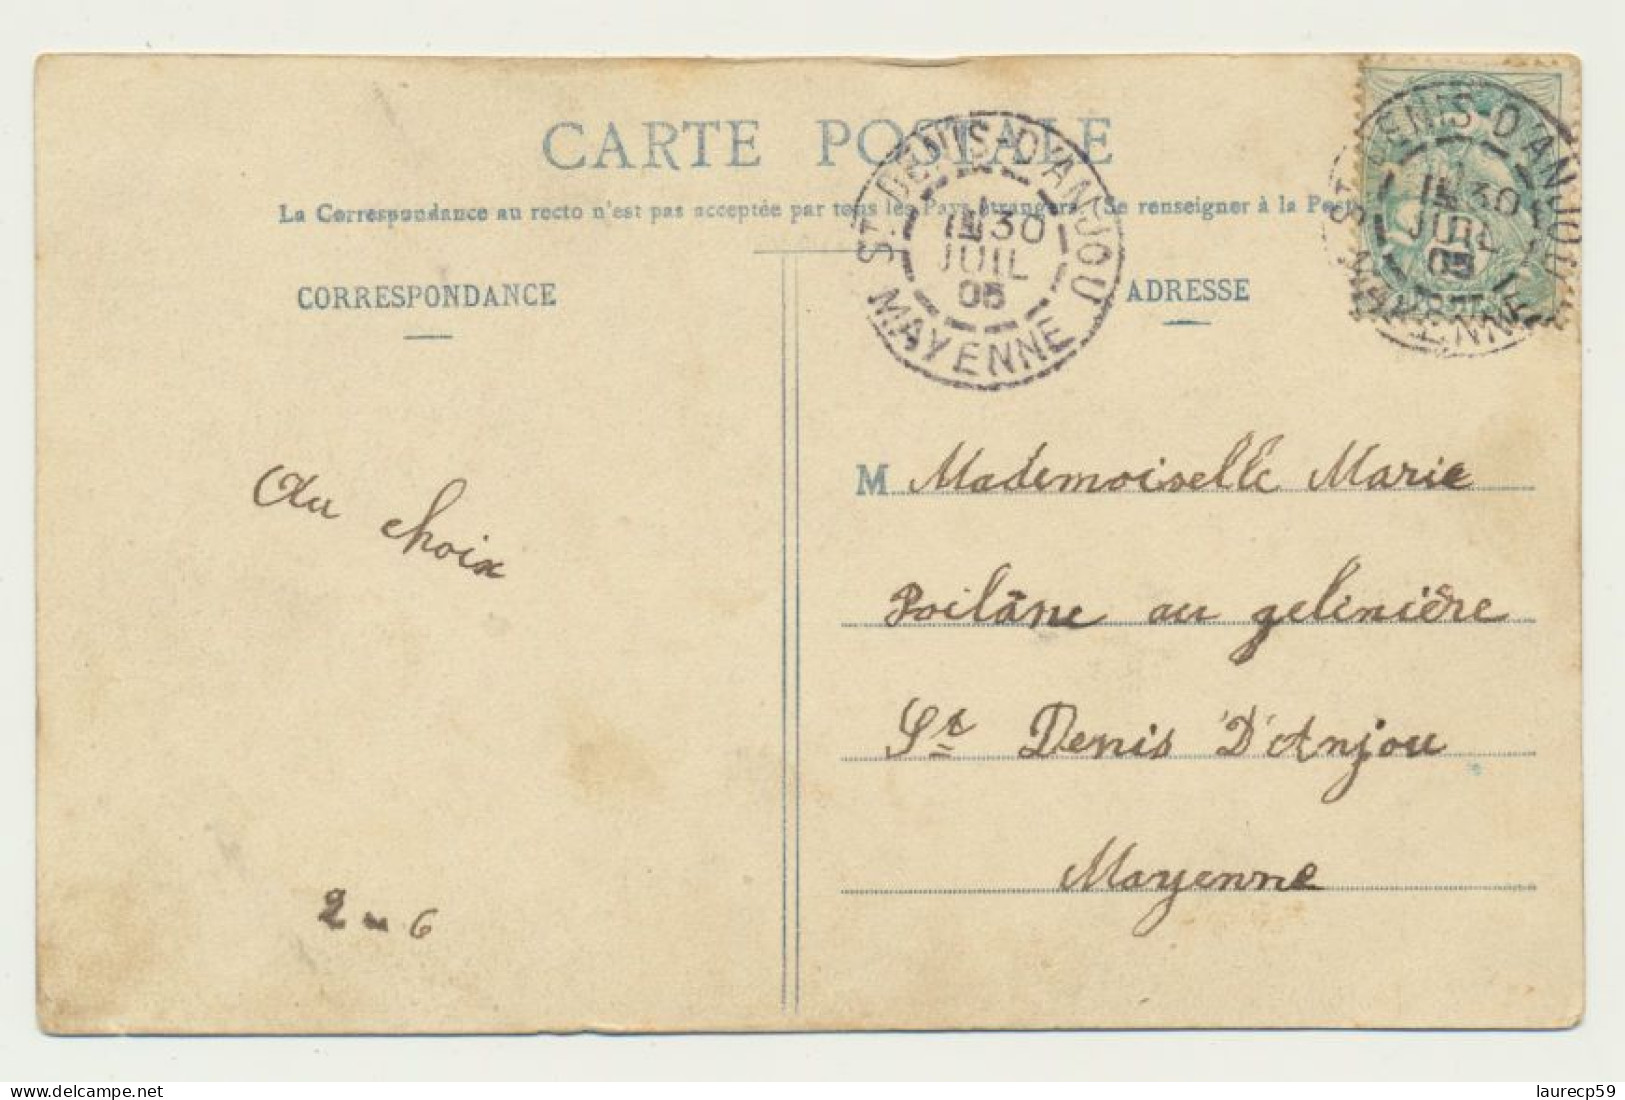 CARTE POSTALE
La Correspondance au recto n'est pas acceptée par tous les Pays étrangers (Se renseigner à la Post
CORRESPONDANCE
ADRESSE
ST DENIS-D'ANJOU
30
JUIL
05
MAYENNE
ST DENIS-D'ANJOU
30
JUIL
05
MAYENNE
Au choix
2-6
M Mademoiselle Marie
Poilâne au gelinière
St Denis D'Anjou
Mayenne
laurecp59